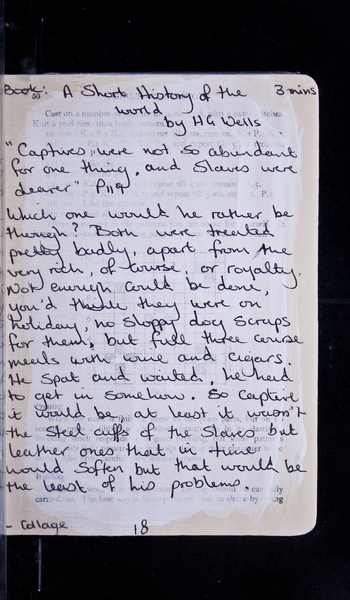 Book: A Short History of the 3 mins
50
world
by HG Wells
Cast on a number
"Captives were not so abundant
for one thing, and Slaves were
dearer" P119
Which one would he rather be
though? Both were treated
pretty badly, apart from the
very rich, of course, or royalty.
Not enough could be done,
you'd think they were on
holiday, no sloppy dog scraps
for them, but full three course
meals with wine and cigars.
He spat and waited, he had
to get in somehow. So captive
it would be at least it wasn't
the steel cuffs of the slaves but
leather ones that in time
would soften but that would be
the least of his problems.
carried out. The best
- Collage 18